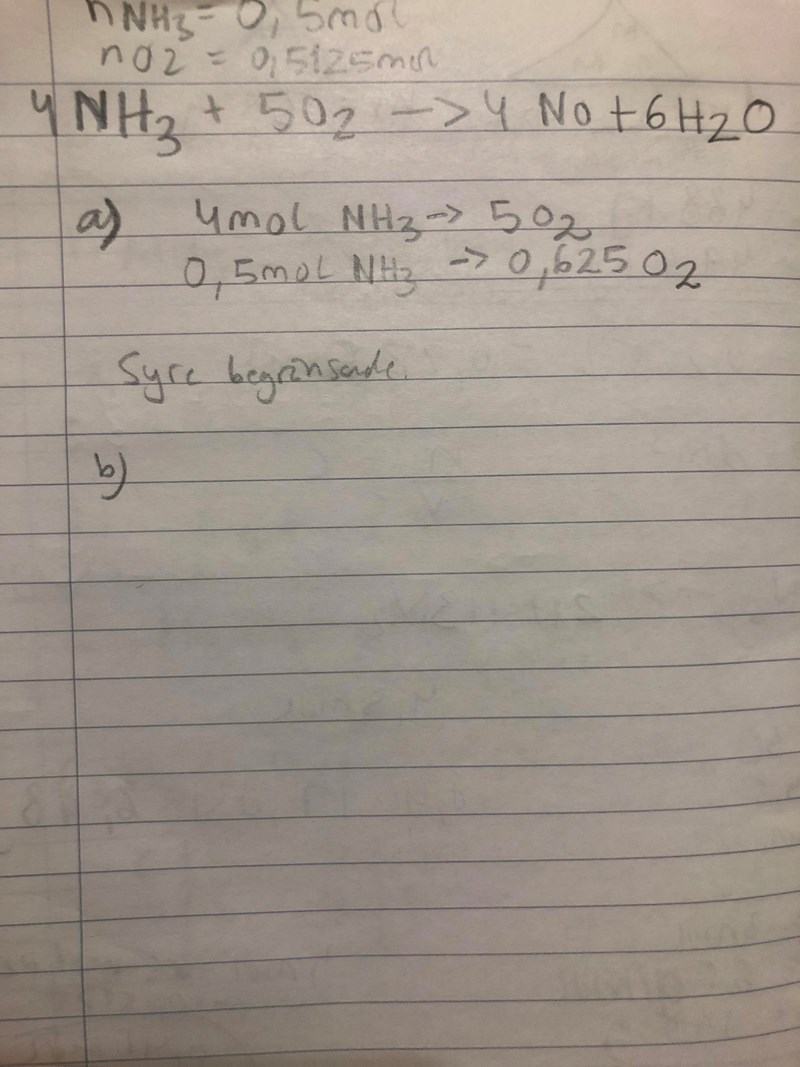 nNH3 = 0,5mol
nO2 = 0,5125mol
4NH3 + 5O2 -> 4 No + 6H2O
a) 4mol NH3 -> 5O2
0,5mol NH3 -> 0,625 O2
Syre begränsade.
b)